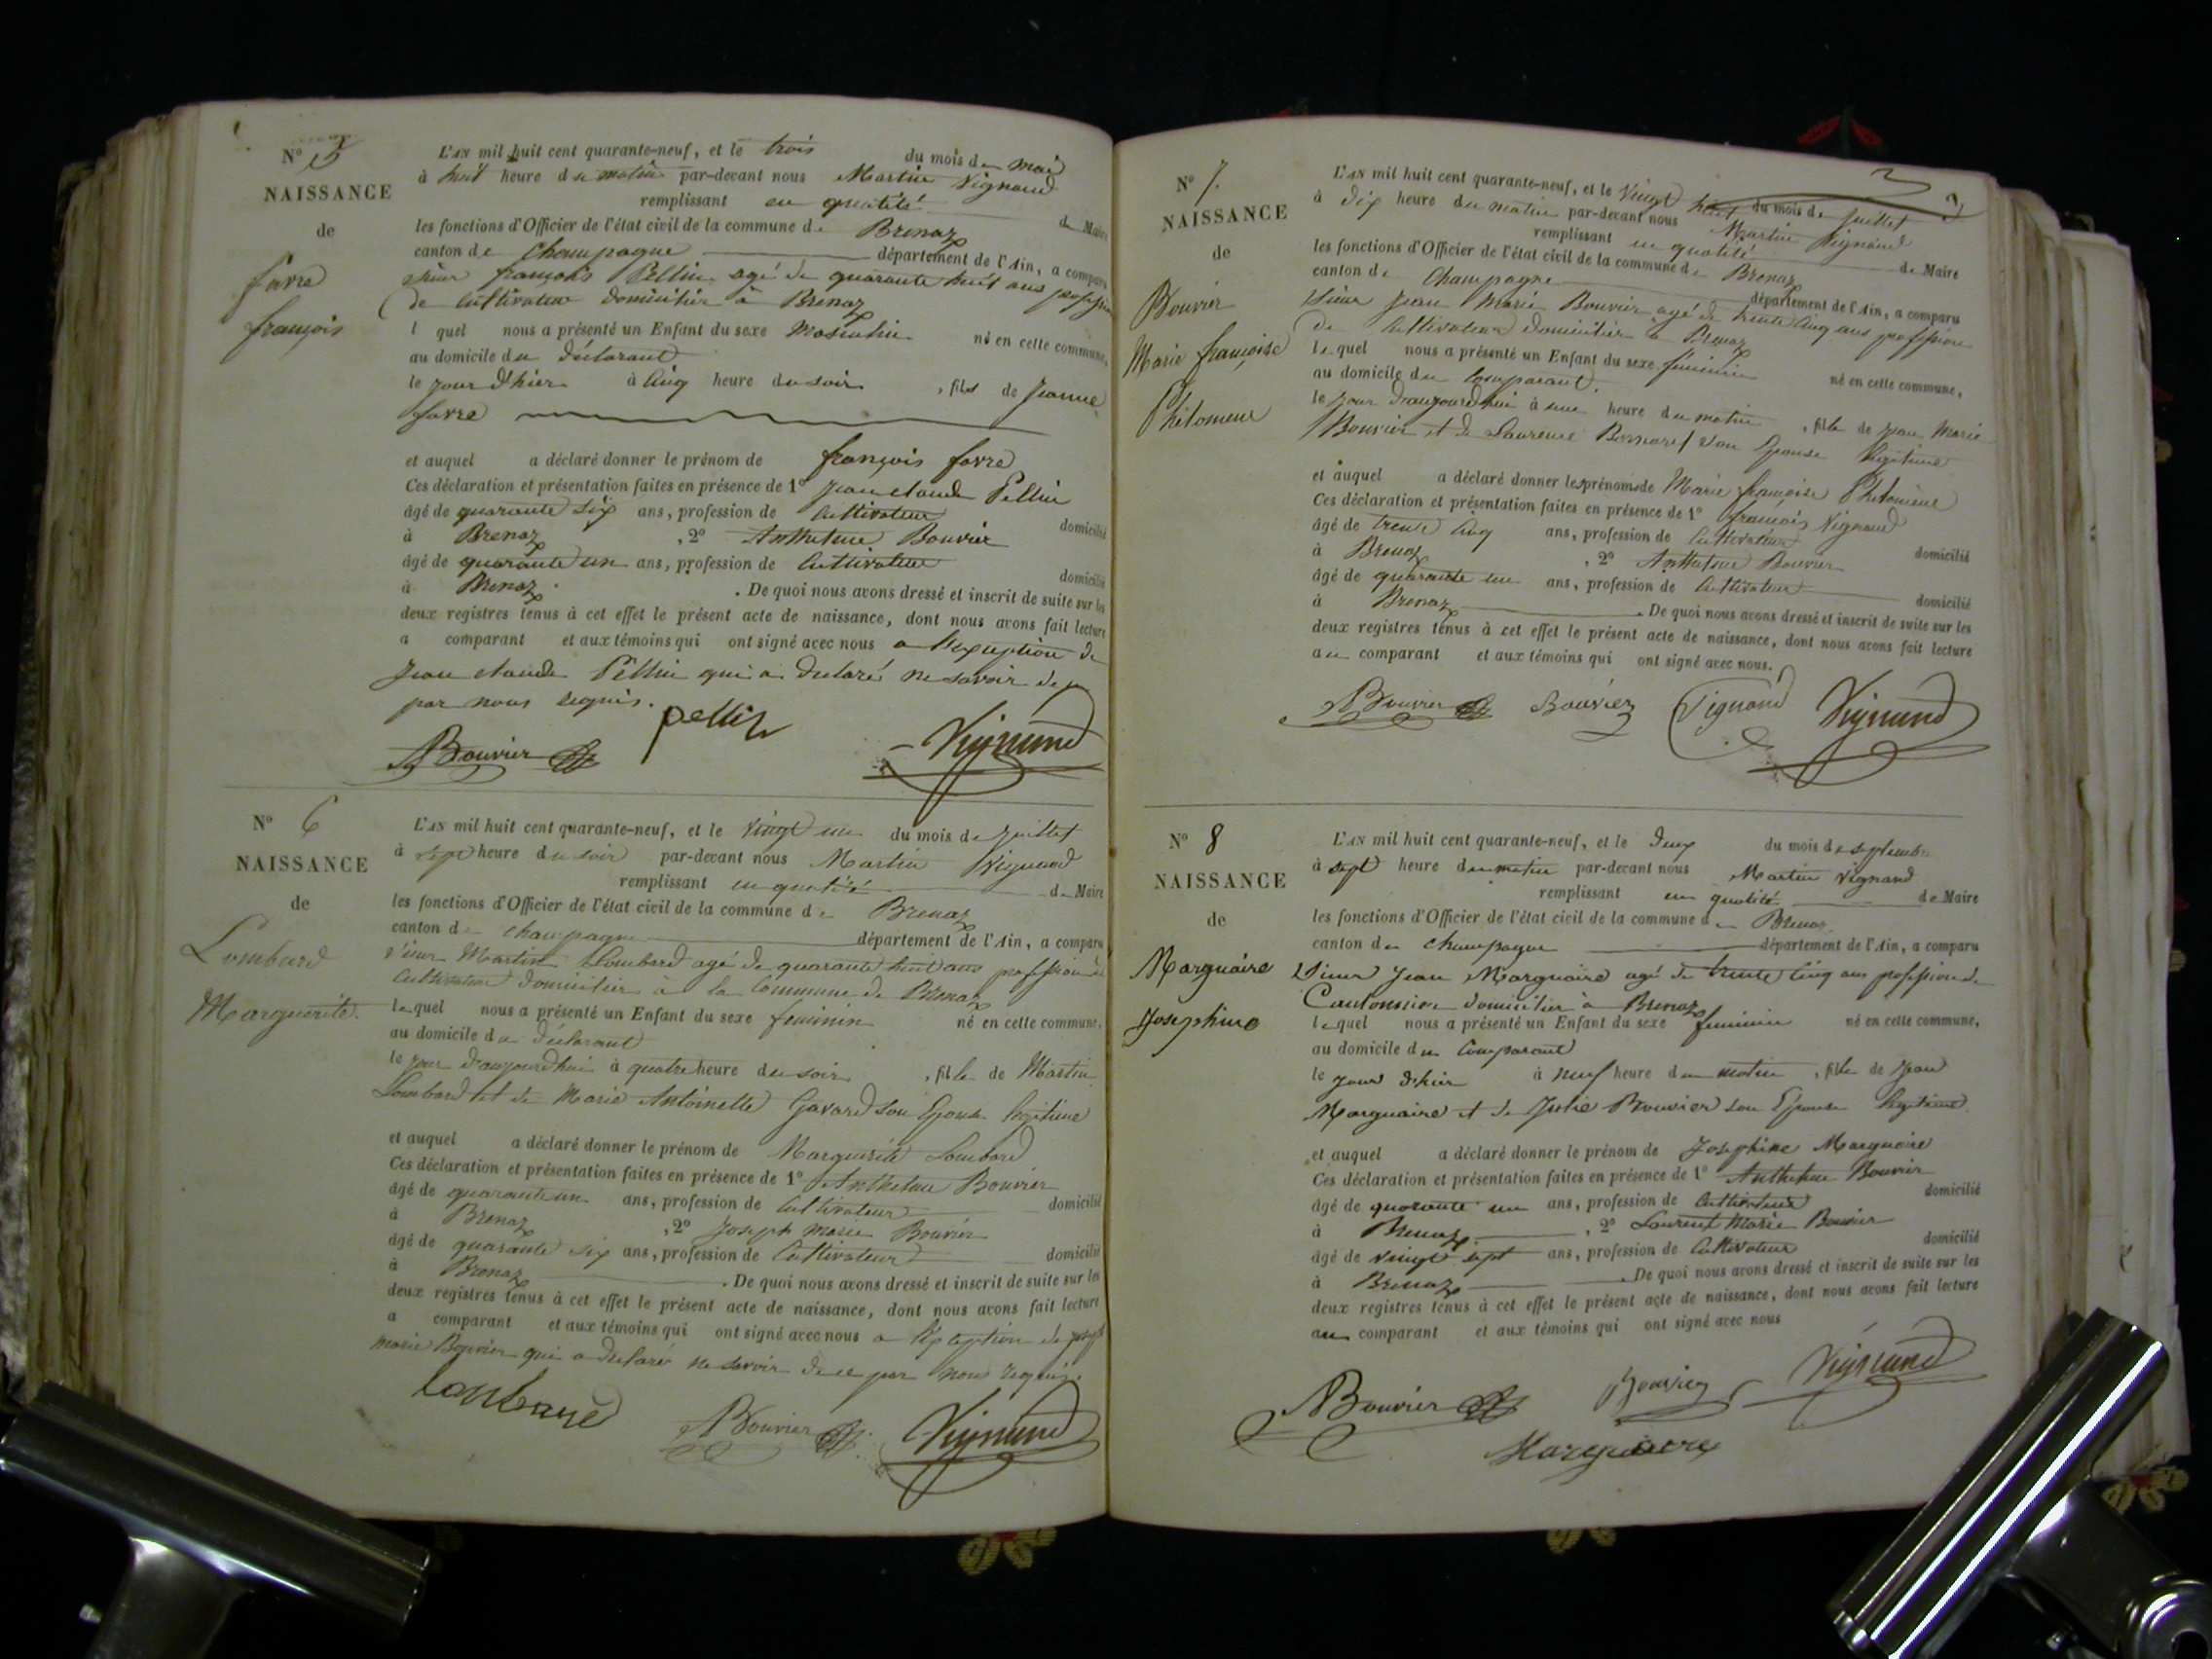 N° 5
NAISSANCE
de
favre
françois
L'AN mil huit cent quarante-neuf, et le trois du mois de mai
à huit heure du matin par-devant nous Martin Vignand
remplissant en qualité de Maire
les fonctions d'Officier de l'état civil de la commune de Brenaz
canton de Champagne département de l'Ain, a comparu
sieur françois Pellin agé de quarante huit ans profession
de Cultivateur domicilier à Brenaz
l quel nous a présenté un Enfant du sexe Masculin né en cette commune,
au domicile du déclarant
le jour d'hier à Cinq heure du soir , fils de Jeanne
favre
et auquel a déclaré donner le prénom de françois favre
Ces déclaration et présentation faites en présence de 1° Jean claude Pellin
âgé de quarante six ans, profession de Cultivateur domicilié
à Brenaz , 2° Anthelme Bouvier
âgé de quarante un ans, profession de Cultivateur domicilié
à Brenaz . De quoi nous avons dressé et inscrit de suite sur les
deux registres tenus à cet effet le présent acte de naissance, dont nous avons fait lecture
a comparant et aux témoins qui ont signé avec nous a l'exception de
Jean claude Pellin qui a declaré ne savoir de
par nous requis.
pellin
ABouvier
Vignand
N° 6
NAISSANCE
de
Lombard
Marguerite
L'AN mil huit cent quarante-neuf, et le vingt un du mois de juillet
à sept heure du soir par-devant nous Martin Vignand
remplissant en qualité de Maire
les fonctions d'Officier de l'état civil de la commune de Brenaz
canton de champagne département de l'Ain, a comparu
sieur Martin Lombard agé de quarante huit ans profession de
Cultivateur domicilier à la Commune de Brenaz
lequel nous a présenté un Enfant du sexe feminin né en cette commune,
au domicile du déclarant
le jour d'aujourd'hui à quatre heure du soir , fille de Martin
Lombard et de Marie Antoinette Gavard son Epouse legitime
et auquel a déclaré donner le prénom de Marguerite Lombard
Ces déclaration et présentation faites en présence de 1° Anthelme Bouvier
âgé de quarante un ans, profession de Cultivateur domicilié
à Brenaz , 2° Joseph marie Bouvier
âgé de quarante six ans, profession de Cultivateur domicilié
à Brenaz . De quoi nous avons dressé et inscrit de suite sur les
deux registres tenus à cet effet le présent acte de naissance, dont nous avons fait lecture
a comparant et aux témoins qui ont signé avec nous a l'exception de joseph
marie Bouvier qui a declaré ne savoir de ce par nous requis.
Lombard
ABouvier
Vignand
N° 7.
NAISSANCE
de
Bouvier
Marie françoise
Philomene
L'AN mil huit cent quarante-neuf, et le vingt huit du mois de juillet
à dix heure du matin par-devant nous Martin Vignand
remplissant en qualité de Maire
les fonctions d'Officier de l'état civil de la commune de Brenaz
canton de Champagne département de l'Ain, a comparu
sieur Jean Marie Bouvier agé de trente Cinq ans profession
de Cultivateur domicilier à Brenaz
lequel nous a présenté un Enfant du sexe féminin né en cette commune,
au domicile du Comparant.
le jour d'aujourd'hui à une heure du matin , fille de Jean Marie
Bouvier et de Laurence Bornard son Epouse legitime
et auquel a déclaré donner les prénoms de Marie françoise Philomène
Ces déclaration et présentation faites en présence de 1° françois Vignand
âgé de trente Cinq ans, profession de Cultivateur domicilié
à Brenaz , 2° Anthelme Bouvier
âgé de quarante un ans, profession de Cultivateur domicilié
à Brenaz . De quoi nous avons dressé et inscrit de suite sur les
deux registres tenus à cet effet le présent acte de naissance, dont nous avons fait lecture
au comparant et aux témoins qui ont signé avec nous.
ABouvier
Bouvier
Vignand
Vignand
N° 8
NAISSANCE
de
Marguaire
Josephine
L'AN mil huit cent quarante-neuf, et le deux du mois de septembre
à sept heure du matin par-devant nous Martin Vignand
remplissant en qualité de Maire
les fonctions d'Officier de l'état civil de la commune de Brenaz
canton de champagne département de l'Ain, a comparu
sieur Jean Marguaire agé de trente Cinq ans profession de
Cantonnier domicilier à Brenaz
lequel nous a présenté un Enfant du sexe feminin né en cette commune,
au domicile du Comparant
le jour d'hier à neuf heure du matin , fille de Jean
Marguaire et de Julie Bouvier son Epouse legitime
et auquel a déclaré donner le prénom de Josephine Marguaire
Ces déclaration et présentation faites en présence de 1° Anthelme Bouvier
âgé de quarante un ans, profession de Cultivateur domicilié
à Brenaz , 2° Laurent Marie Bouvier
âgé de vingt sept ans, profession de Cultivateur domicilié
à Brenaz . De quoi nous avons dressé et inscrit de suite sur les
deux registres tenus à cet effet le présent acte de naissance, dont nous avons fait lecture
au comparant et aux témoins qui ont signé avec nous
ABouvier
Bouvier
Vignand
Marguaire